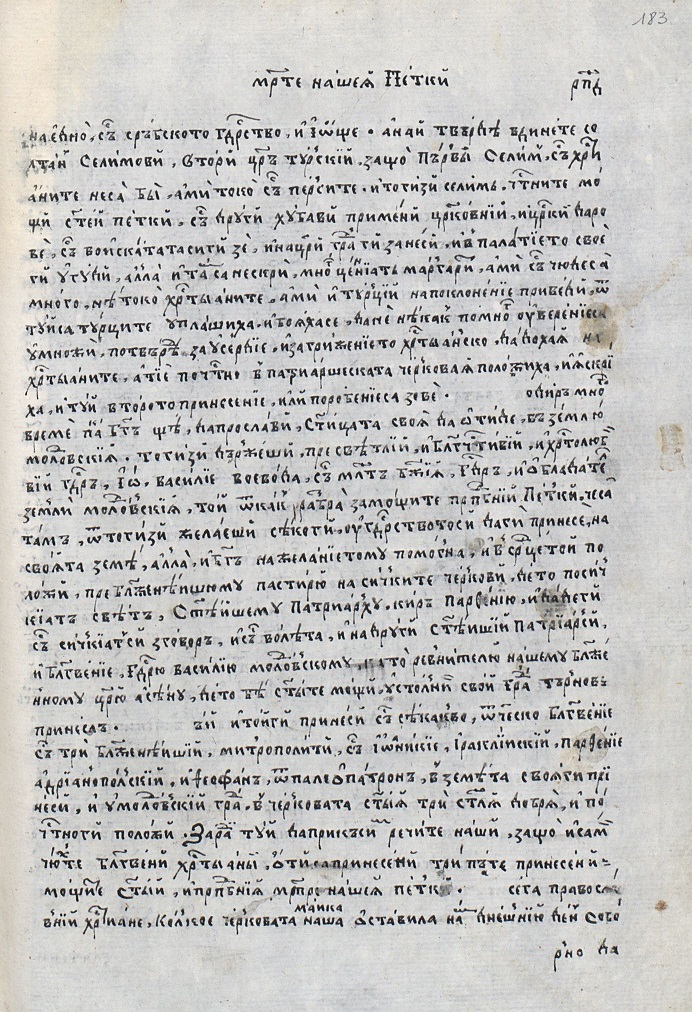 183
мр҃те на́шеѧ̀ Пе́тки рп҃д
на є҆дно̀, съ сръбското гдⷭ҇рство, и҆ і҆ѡ́ще. а҆ на́й твъ́рдѣ вдине́те со
лта́н Сели́мови, втори црⷭ҇ъ ту́рскїй, защо̀ пъ́рвы Сели́м, съ хрⷭ҇ти
а́ните неса̀ бы̀, а҆мѝ то́ко съ пе́рсите. и҆ то́гизи сели́мь. чⷭ҇тните мо́
щи ст҃е́й пе́тки, съ дру́ги ху́бави приме́ни црⷭ҇ко́внїи, и҆ црⷭ҇ки даро
вѐ, съ во́йската та си ги зѐ, и҆ на цр҃и гра́ⷣ ги зане́си, и҆ в пала́тїето своѐ
ги у҆ту́ри, а҆лла̀ и҆ та́м са не скрѝ, мно́г цени́ать ма́ргари, а҆мѝ съ чюдеса̀
мно́го, не то́ко хрⷭ҇тїа́ните, а҆мѝ и҆ ту́рцїи на поклоне́нїе приведѝ, ѿ
ту́й са ту́рците у҆пла́шиха, и҆ боя́хасе, да не нѣ́как помно́г у҆вере́нїеса
у҆мно́жи, потвъ́рдⷣ, за у҆се́рдїе, и҆ за триже́нїето хрⷭ҇тїа́нско, да до́хая на
хрⷭ҇тїа́ните, а҆ ті́е поче́тно в патриа́ршеската че́рковая поло́жиха, и҆ я҆скри́
ха, и҆ ту́й вто́рото принесе́нїе, и҆ли породе́нїеса зовѐ. ѻ҆дир мно́г
вре́ме па́к бг҃ъ щѣ̀, да просла́ви, ст҃и́цата своя̀ да ѿти́де, въ зе́млю
молдо́вскїя. то́гизи дъ́ржещи, пресвѣ́тлїй, и҆ блгⷭ҇чтⷭ҇и́вїй, и҆ хрⷭ҇толю́б
вїй гдⷭ҇ръ, і҆ѡ́, васи́лїе воево́да, съ млⷭ҇тъ бж҃їя, гдⷭ҇ръ, и҆ ѻ҆блада́те
землѝ молдо́вскїя, то́й ѿкак разбра̀ за мо́щите прпⷣбнїй Пе́тки, че са
та́мъ, ѿ то́гизи желае́ши сѣ́коги, у҆ гдⷭ҇рство то си да ги принесѐ, на
своя́та земѐ, а҆лла̀, и҆ бг҃ъ на жела́нїе то му помо́гна, и҆ в срⷣце той по
ло́жи, преблаже́нѣйшому па́стирю на си́чките че́ркови, де́то по си́ч
кїат свѣ́тъ, ст҃ѣ́йшему Патриа́рху, ки́ръ Парѳе́нїю, и҆ да́дети
съ си́чкїатси зго́воръ, и҆ съ во́лѣта, и҆ на дру́ги ст҃ѣ́йшїй Патрїа́рсй,
и҆ блгⷭ҇ве́нїе, гдⷭ҇рю васи́лїю молдо́вскому, като̀ ревни́телю на́шему бл҃же́
нному црⷭ҇ю̀ а҆сѣ́ну, де́то бѣ̀ ст҃ы́те мо́щи, у҆ сто́лнїй сво́й гра́ⷣ тъ́рновъ
прине́слъ. ъ́й и҆ то́й ги прине́си съ сѣ́какво, ѿче́ско блгⷭ҇ве́нїе
съ трѝ бл҃же́нѣйшїй, митрополи́ти, съ і҆ѡани́кїе, і҆ракли́йскїй, парѳе́нїе
а҆дрїанопо́лскїй, и҆ ѳеофа́нъ, ѿ палеопа́тронъ, в земѣ́та своя́ ги при
не́си, и҆ у҆ молдо́вскїй гра́ⷣ. в че́рковата ст҃ы́й трѝ ст҃ле́я добрѐ, и҆ по
чⷭ҇тно ги поло́жи. Зара́дⷣ ту́й да прика́жем речи́те на́ши, защо̀ и҆ са́м
чю́йте блгⷭ҇ве́ни хрⷭ҇тїа́ны, ѻ҆ти́ са принесе́ни три пъ́те принесе́ни
мо́щиⷮе ст҃ы́й, и҆ прпⷣбнїя мр҃те на́шея пе́тки. сега правосла
внїй хрⷭ҇тїа́не, Ко́лкое че́рковата ма́йка на́ша ѻ҆ста́вила на́м дне́шнїю де́й собо́
рно да